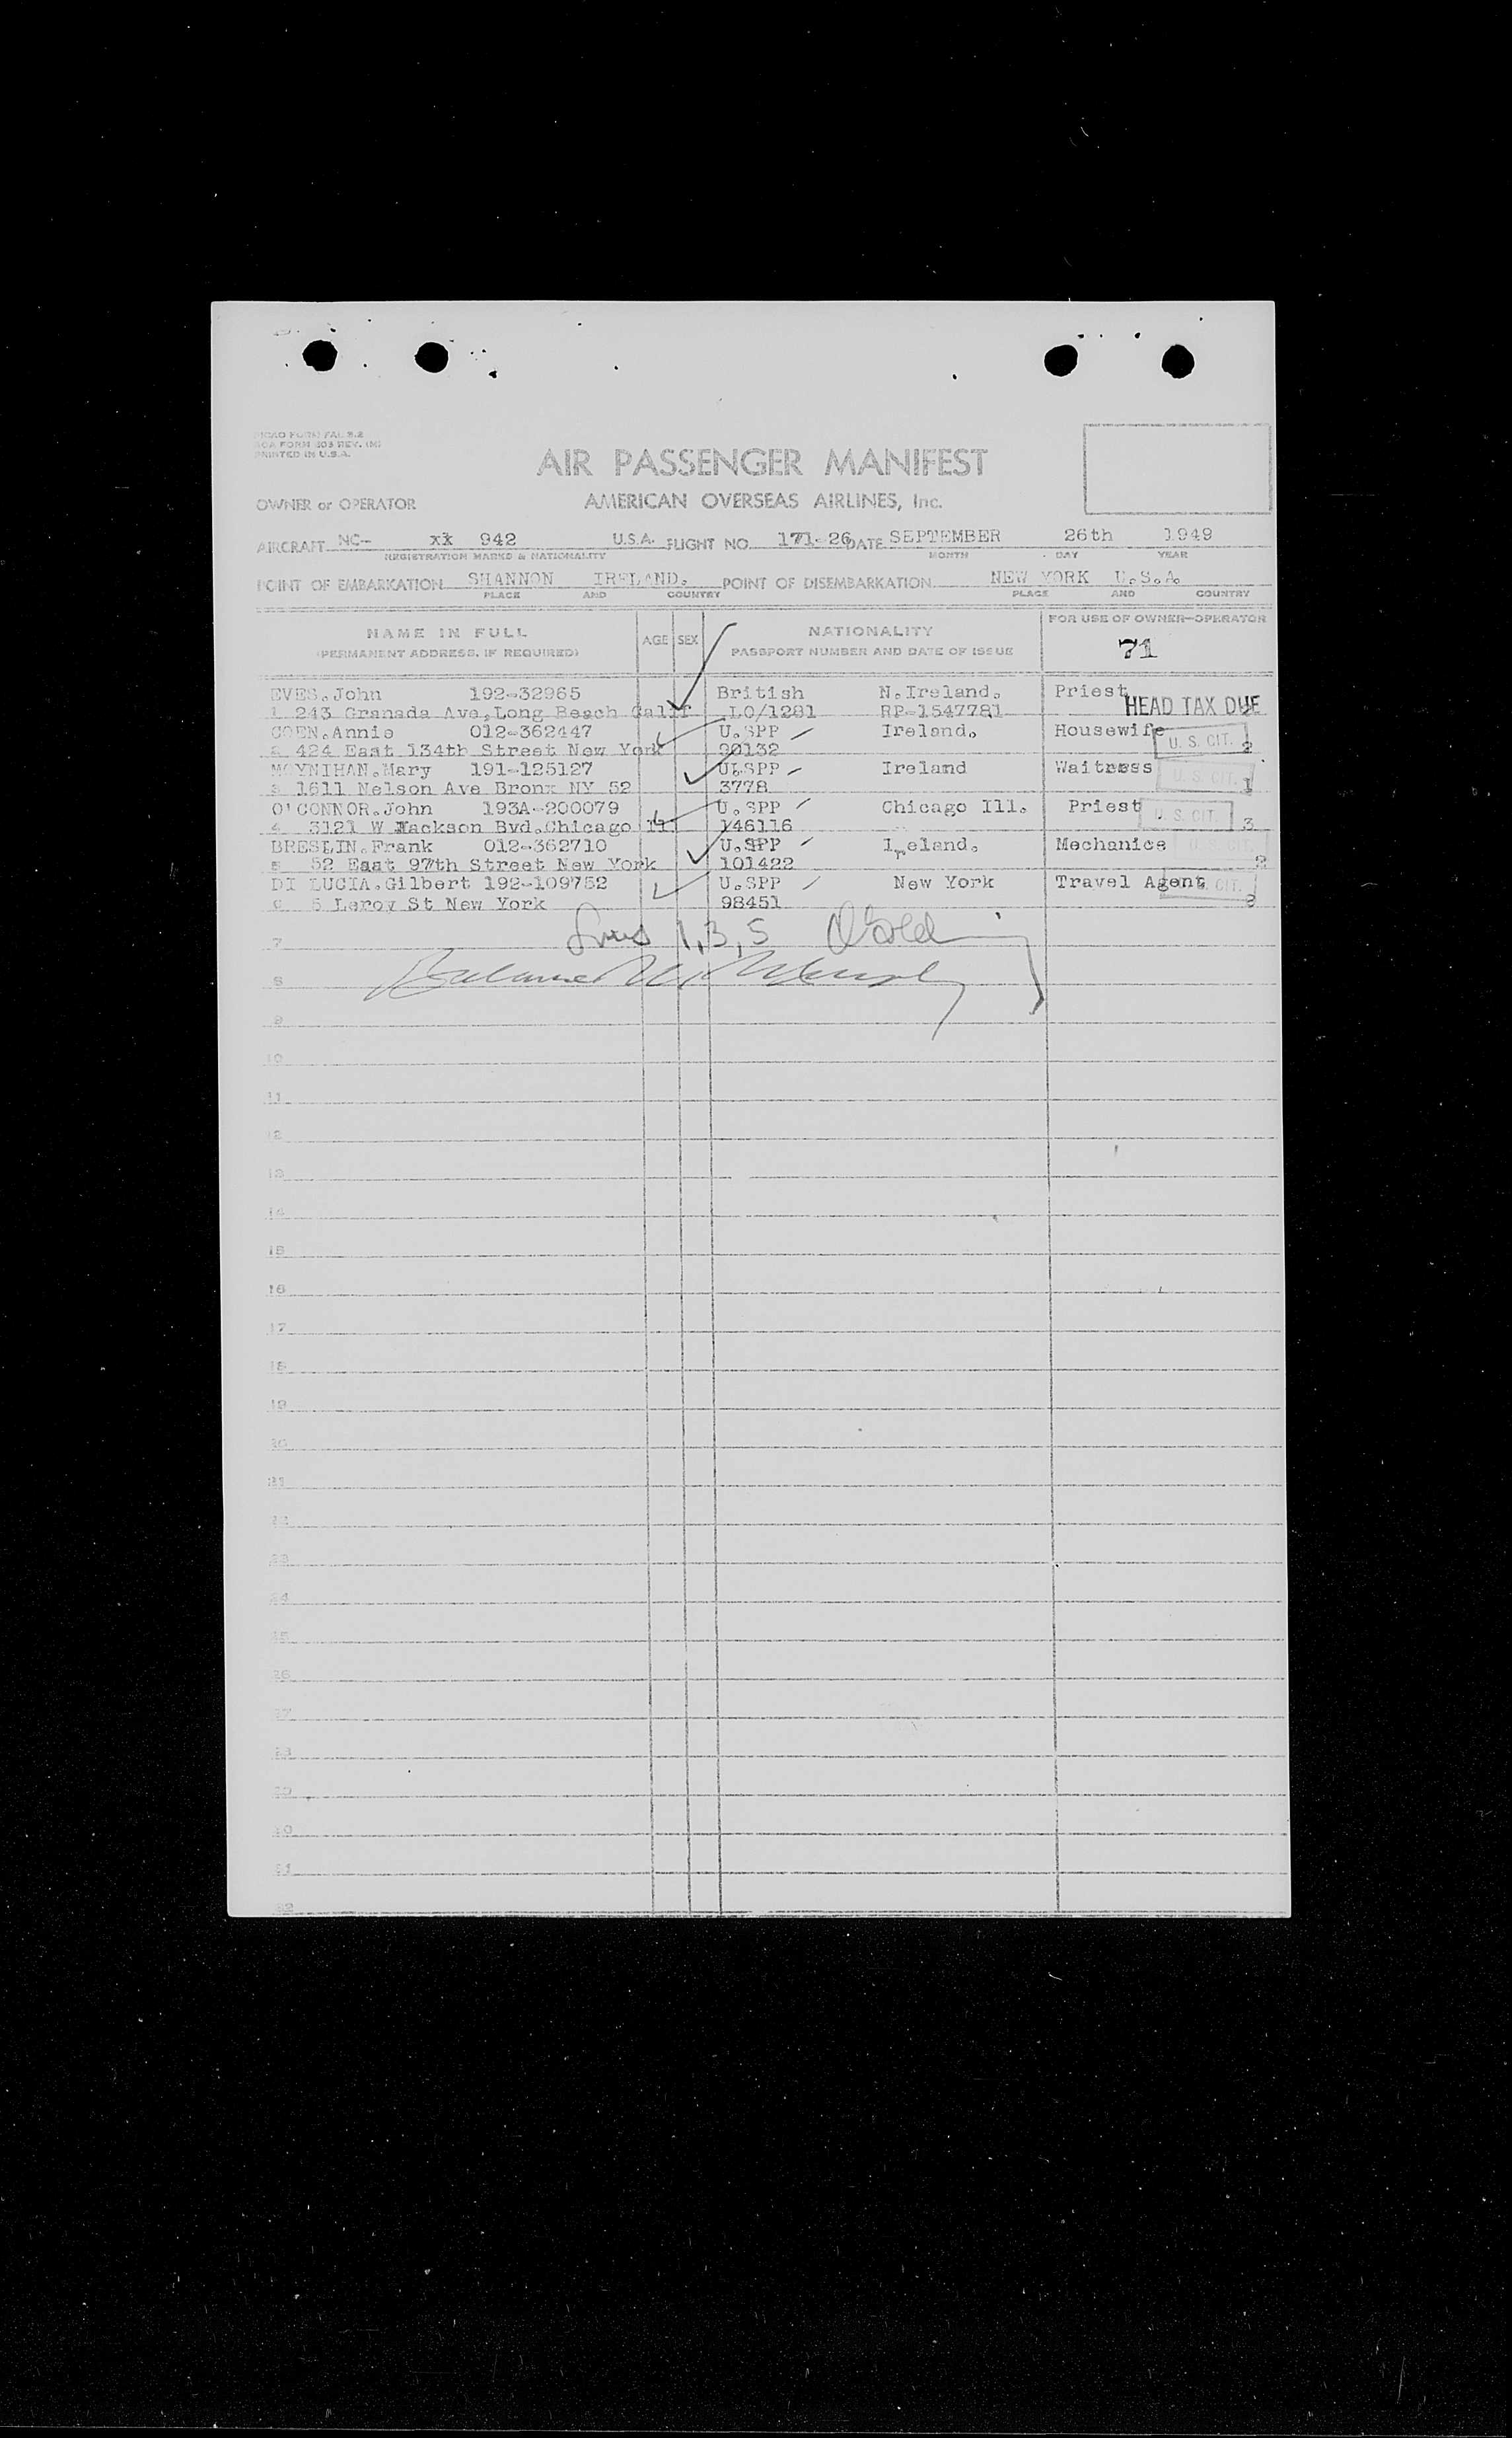 ICAO FORM FAL 2.2
AOA FORM 403 REV. (M)
PRINTED IN U.S.A.
AIR PASSENGER MANIFEST
OWNER or OPERATOR AMERICAN OVERSEAS AIRLINES, Inc.
AIRCRAFT NC- xx 942 U.S.A. FLIGHT NO. 171-26 DATE SEPTEMBER 26th 1949
REGISTRATION MARKS & NATIONALITY MONTH DAY YEAR
POINT OF EMBARKATION SHANNON IRELAND. POINT OF DISEMBARKATION NEW YORK U.S.A.
PLACE AND COUNTRY PLACE AND COUNTRY
NAME IN FULL AGE SEX NATIONALITY FOR USE OF OWNER-OPERATOR
(PERMANENT ADDRESS, IF REQUIRED) PASSPORT NUMBER AND DATE OF ISSUE 71
EVES.John 192-32965 British N.Ireland. Priest
1 243 Granada Ave,Long Beach Calif LO/1281 RP-1547781 HEAD TAX DUE
COEN.Annie 012-362447 U.SPP Ireland. Housewife U. S. CIT.
2 424 East 134th Street New York 90132 2
MOYNIHAN.Mary 191-125127 U.SPP Ireland Waitress U. S. CIT.
3 1611 Nelson Ave Bronx NY 52 3778 1
O'CONNOR.John 193A-200079 U.SPP Chicago Ill. Priest U. S. CIT.
4 3121 W Jackson Bvd.Chicago Ill 146116 3
BRESLIN.Frank 012-362710 U.SPP Ireland. Mechanics U. S. CIT.
5 52 East 97th Street New York 101422 2
DI LUCIA.Gilbert 192-109752 U.SPP New York Travel Agent U. S. CIT.
6 5 Leroy St New York 98451
7 Lines 1,3,5
8
9
10
11
12
13
14
15
16
17
18
19
20
21
22
23
24
25
26
27
28
29
30
31
32